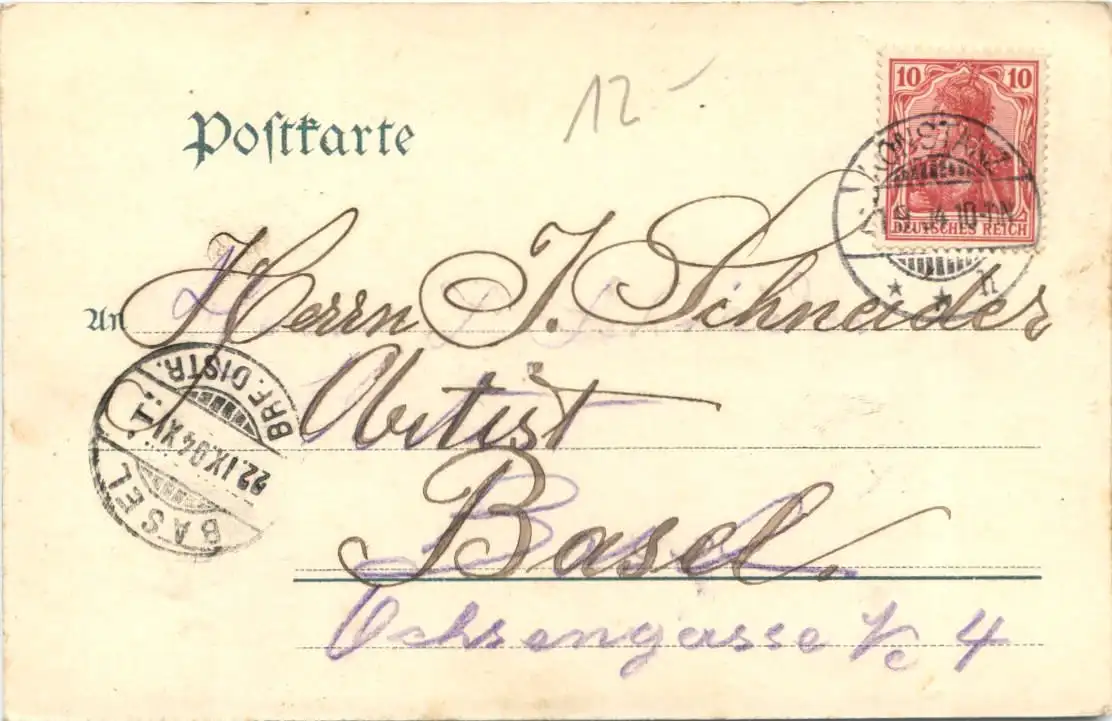 12-
Postkarte
10 10
DEUTSCHES REICH
KONSTANZ
.9.04.10-11N
An Herrn J. Schneider
Artist
Basel.
Ochsengasse No 4
BASEL
BRF. DISTR.
22.IX.04.XI